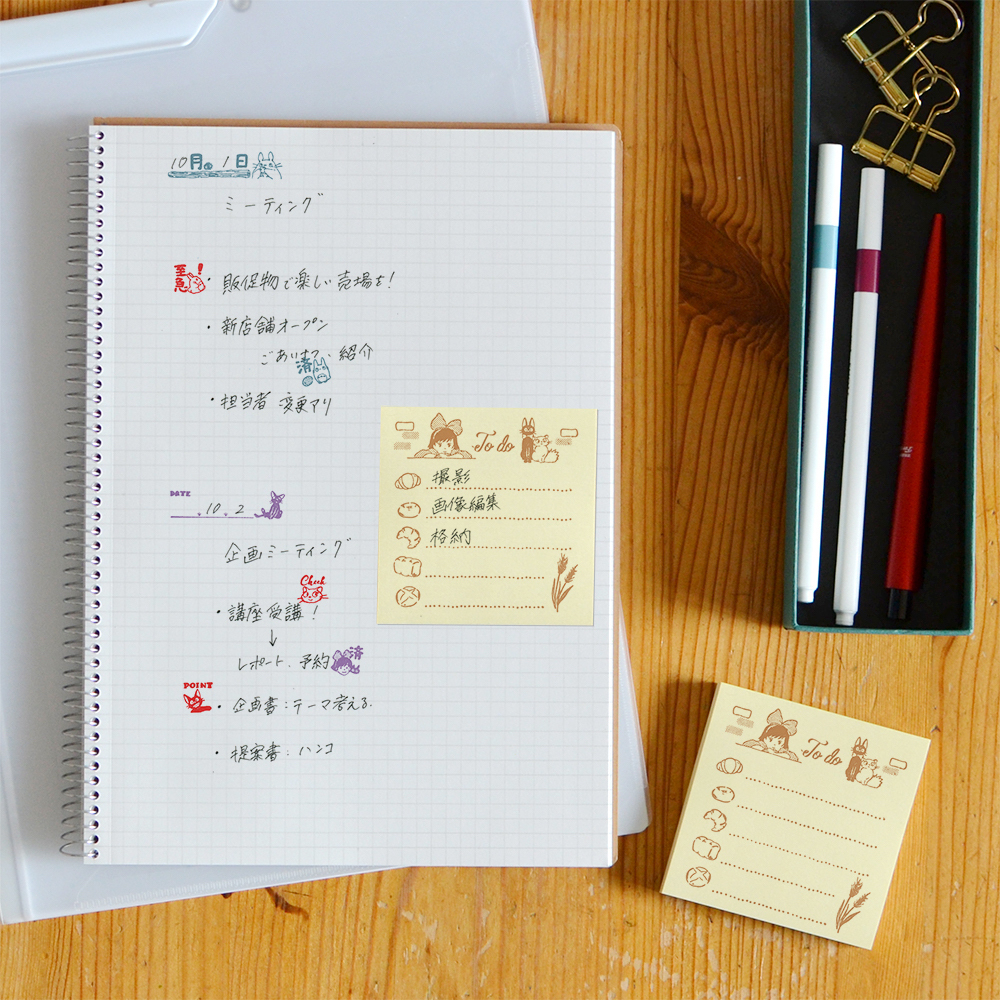 10月 1日
ミーティング
至急!
・販促物で楽しい売場を!
・新店舗オープン
ごあいさつ、紹介
済
・担当者 変更アリ
DATE
10. 2
企画ミーティング
Check
・講座受講!
↓
レポート、予約
済
POINT
・企画書:テーマ考える.
・提案書:ハンコ
To do
撮影
画像編集
格納
To do